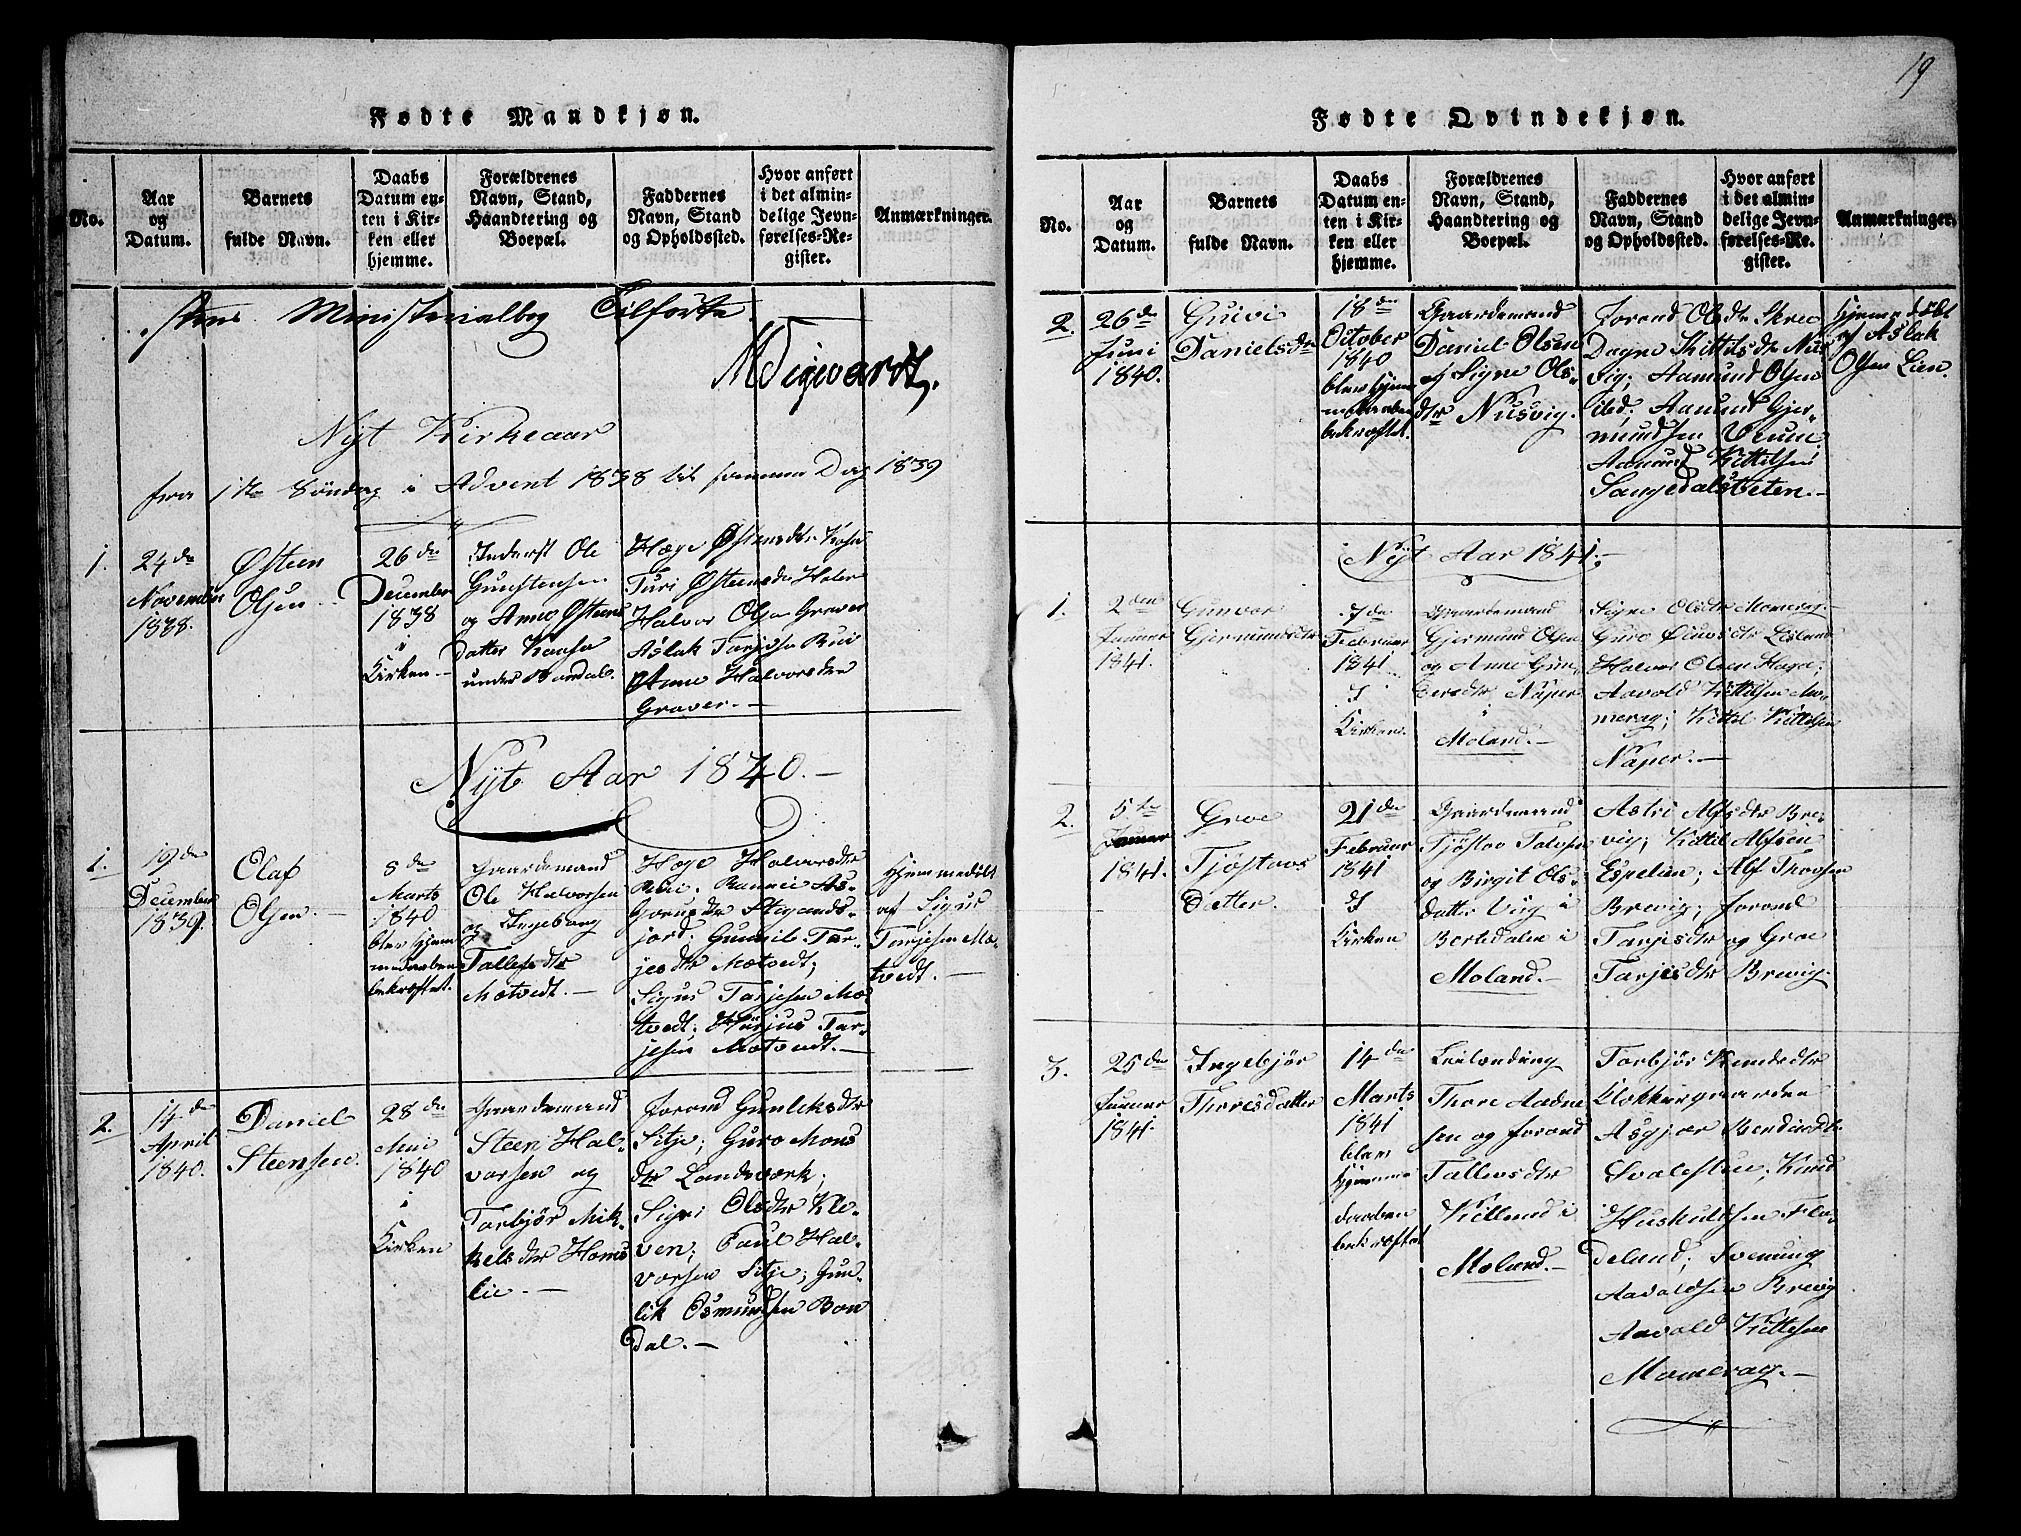 19
Fødte Mandkjøn.
No.
Aar
og
Datum.
Barnets
fulde Navn.
Daabs
Datum en-
ten i Kir-
ken eller
hjemme.
Forældrenes
Navn, Stand,
Haandtering og
Boepæl.
Faddernes
Navn, Stand
og Opholdssted.
Hvor anført
i det almin-
delige Jevn-
førelses-Re-
gister.
Anmærkninger.
Ministerialbog Tilførte
Nyt Kirkeaar
fra 1ste Søndag i Advent 1838 til samme Dag 1839
1.
24de
November
1838.
Østen
Olsen.
26de
December
1838
i
Kirken.
Inderst Ole
Gunstensen
og Anne Østens
datter
under
Hæge Østensdtr
Turi Østensdtr
Halvor Olsen Graver
Aslak
Anne Halvorsdtr
Graver.
Nyt Aar 1840.
1.
19de
December
1839.
Olaf
Olsen.
8de
Marts
1840
blev hjem-
medaaben
bekræftet.
Gaardemand
Ole Halvorsen
og Ingeborg
Tallefsdtr
Mætvedt.
Hæge Halvorsdtr
jord. Gunnil Tar-
jesdtr Mætvedt;
Sigur Tarjesen Mæ-
tvedt. Tar-
jesen Mætvedt.
Hjemmedøbt
af Sigur
Tarjesen Mæ-
tvedt.
2.
14de
April
1840.
Daniel
Steensen.
28de
Mai
1840
i
Kirken
Gaardemand
Steen Hal-
vorsen og
Torbjør Mik-
kelsdtr Homs-
lie.
Jorand Gunleksdtr
Sitje; Guro Mons
dtr Landsværk;
Sigri Olsdtr Kle-
ven; Paul Hal-
vorsen Sitje; Gun-
lik Osmundsen Bon
dal.
Fødte Qvindekjøn.
No.
Aar
og
Datum.
Barnets
fulde Navn.
Daabs
Datum en-
ten i Kir-
ken eller
hjemme.
Forældrenes
Navn, Stand,
Haandtering og
Boepæl.
Faddernes
Navn, Stand
og Opholdssted.
Hvor anført
i det almin-
delige Jevn-
førelses-Re-
gister.
Anmærkninger.
2.
26de
Juni
1840.
Guivi
Danielsdtr
18de
October
1840
blev hjem-
medaaben
bekræftet.
Gaardemand
Daniel Olsen
og Signe Ols-
dtr Nusvig.
Jorand Olsdtr
Dagne Kittilsdtr Nus-
vig; Aamund Olsen
Aamund Gjer-
mundsen
Aamund Kittilsen
Hjemmedøbt
af Aslak
Olsen Lien.
Nyt Aar 1841.
1.
2den
Januar
1841.
Gunvor
Gjermundsdtr
7de
Februar
1841
I
Kirken.
Gaardemand
Gjermund Olsen
og Anne Gun-
dersdtr Naper
i
Moland.
Signe Olsdtr Momrag.
Guro
Halvor Olsen
Aavold Kittilsen Mo-
merag; Kittil Kittelsen
Naper.
2.
5te
Januar
1841.
Groe
Tjøstovs
datter.
21de
Februar
1841
I
Kirken
Gaardemand
Tjøstov
og Birgit Ols-
datter Vig i
Bortedalen i
Moland.
Astri Alfsdtr Bre-
vig; Kittil Alfsen
Espelien; Alf
Brevig; Jorand
Tarjesdtr og Groe
Tarjesdtr Brevig.
3.
25de
Januar
1841.
Ingebjør
Thoresdatter
14de
Marts
1841
blev
hjemme
daaben
bekræftet
Leilænding
Thore Aadne
sen og Jorand
Tallevsdtr
i
Moland.
Torbjør
Klokkergaarden
Asgjær
Knud
deland; Svenung
Aavoldsen Brevig
Aavold Kittelsen
Momerag.